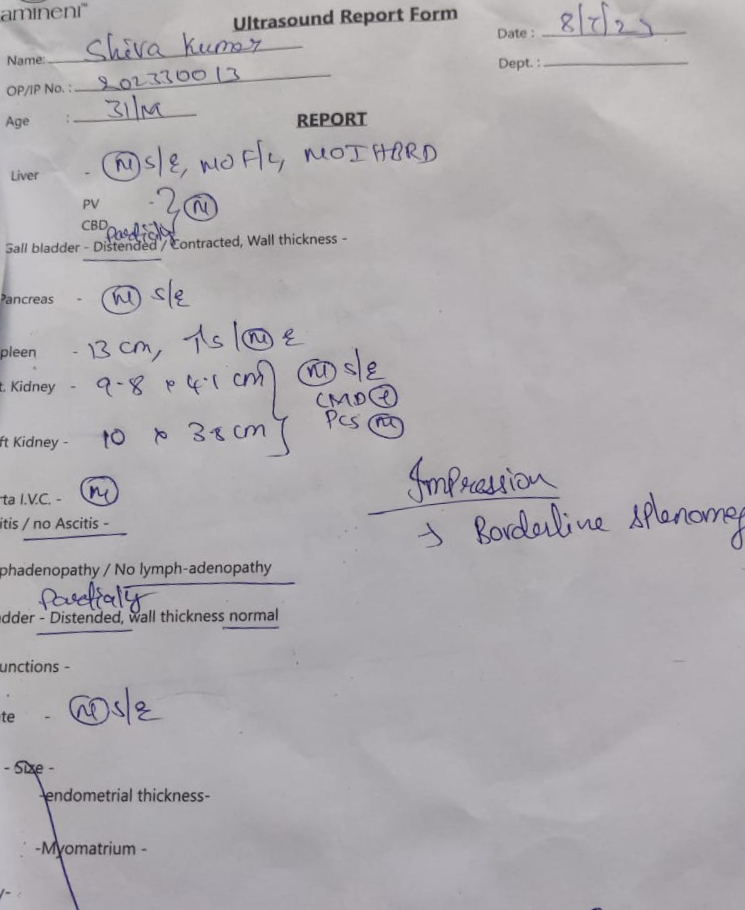 amineni™
Ultrasound Report Form
Date : 8/7/23
Name: Shiva Kumar
Dept. :
OP/IP No. : 202330013
Age : 31/M
REPORT
Liver - (N) S/E, NO F/L, NO IHBRD
PV - } (N)
CBD
Partially
Gall bladder - Distended / Contracted, Wall thickness -
Pancreas - (N) S/E
pleen - 13 cm, ↑S / (N) E
t. Kidney - 9.8 x 4.1 cm } (N) S/E
CMD (+)
ft Kidney - 10 x 3.8 cm } PCS (N)
rta I.V.C. - (N)
Impression
itis / no Ascitis -
→ Borderline splenomeg
phadenopathy / No lymph-adenopathy
Partialy
dder - Distended, wall thickness normal
unctions -
te - (N) S/E
- Size -
-endometrial thickness-
-Myomatrium -